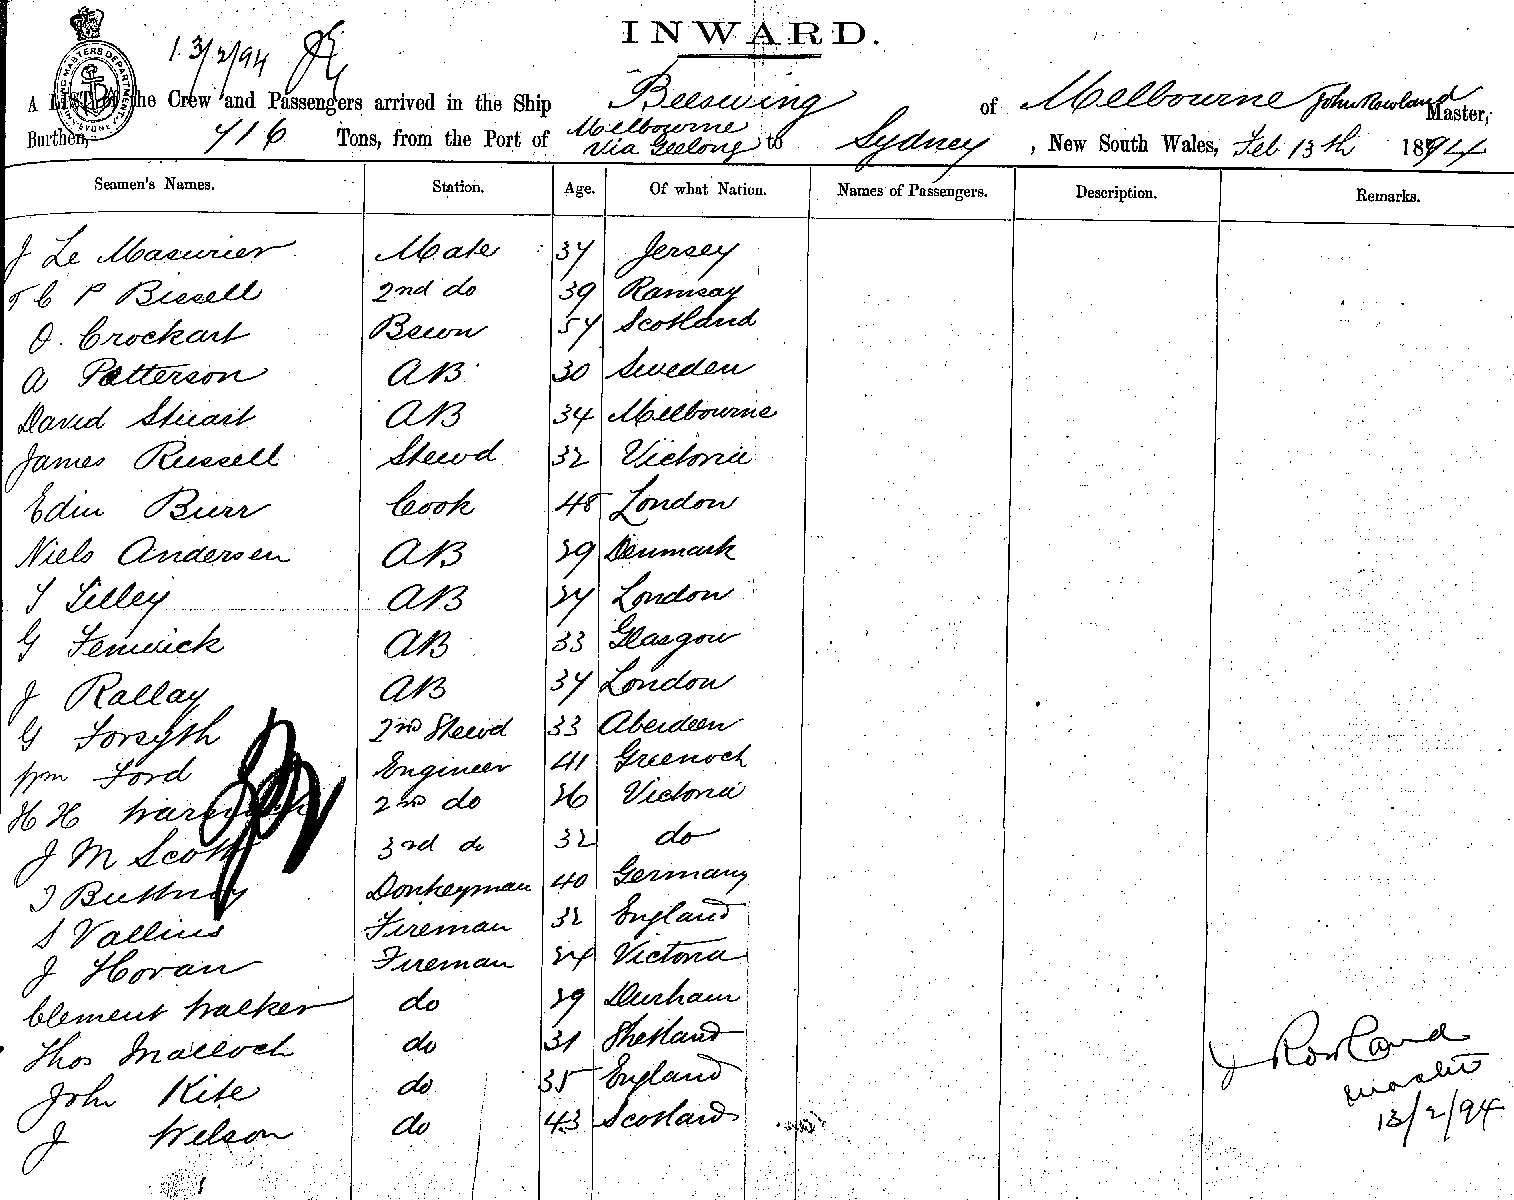 INWARD.
13/2/94
A LIST of the Crew and Passengers arrived in the Ship Beeswing of Melbourne John Rowland Master,
Burthen, 716 Tons, from the Port of Melbourne Via Geelong to Sydney, New South Wales, Feb 13th 1894
Seamen's Names. Station. Age. Of what Nation. Names of Passengers. Description. Remarks.
J Le Masurier Mate 37 Jersey
T C P Bissell 2nd do 39 Ramsay
O. Crockart Bswn 57 Scotland
A Patterson AB 30 Sweden
David Stuart AB 34 Melbourne
James Russell Stewd 32 Victoria
Edin Burr Cook 48 London
Niels Andersen AB 29 Denmark
T Lilley AB 27 London
G Fenwick AB 33 Glasgow
J Rallay AB 37 London
G Forsyth 2nd Stewd 33 Aberdeen
Wm Ford Engineer 41 Greenock
H H 2nd do 26 Victoria
J M Scott 3rd do 32 do
Donkeyman 40 Germany
S Vallins Fireman 32 England
J Horan Fireman 24 Victoria
Clement Walker do 29 Durham
Thos Malloch do 31 Shetland
John Kite do 35 England
J Wilson do 43 Scotland
J Rowland
Master
13/2/94